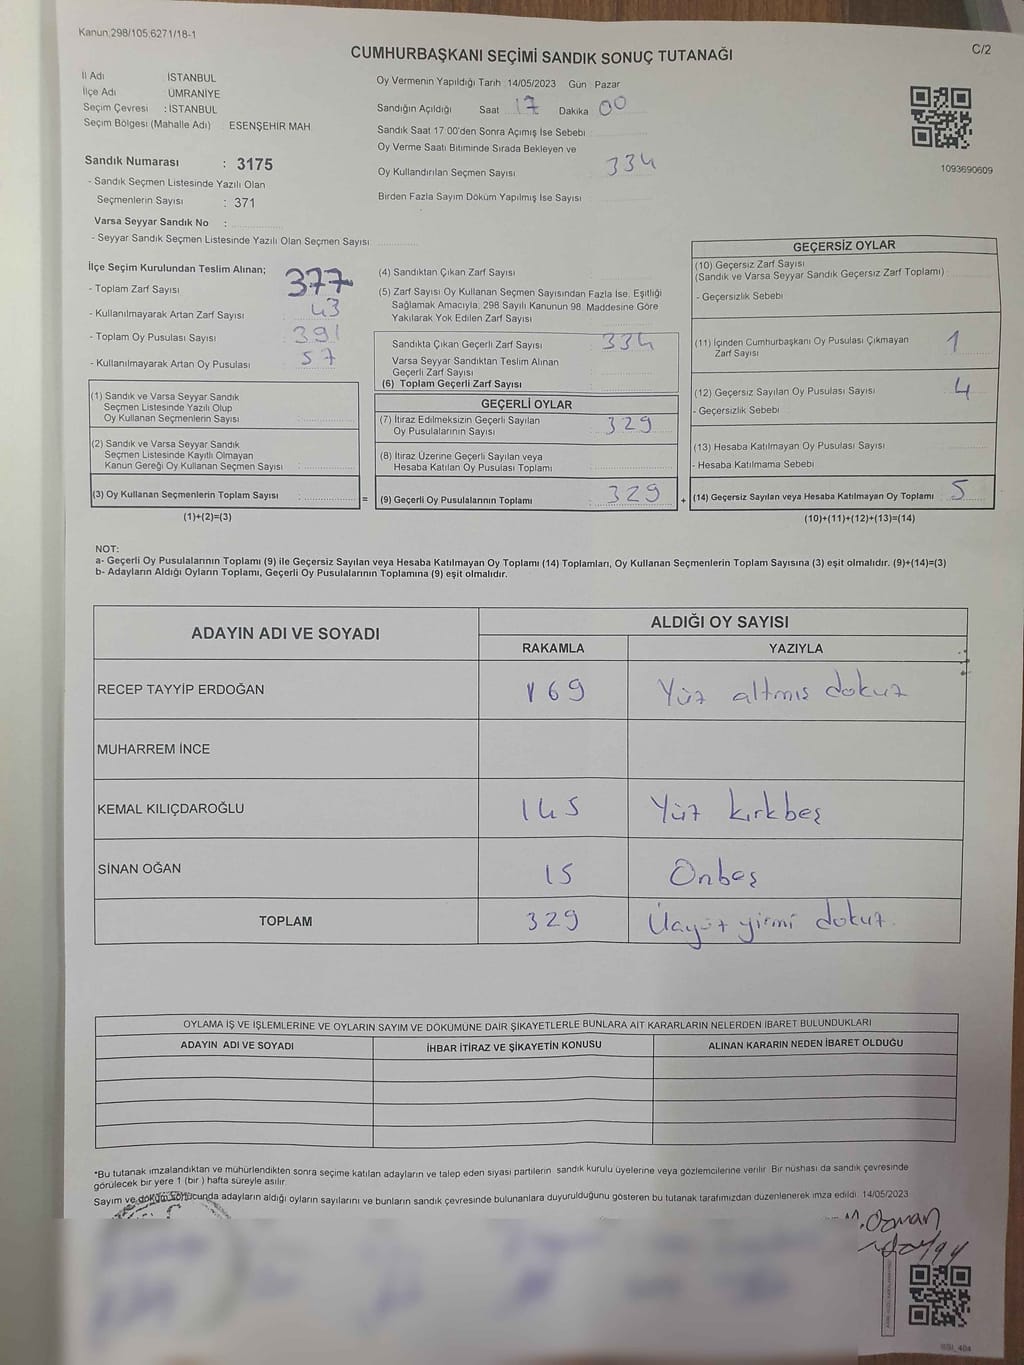 Kanun,298/105,6271/18-1
C/2
CUMHURBAŞKANI SEÇİMİ SANDIK SONUÇ TUTANAĞI
İl Adı İSTANBUL
İlçe Adı ÜMRANİYE
Seçim Çevresi : İSTANBUL
Seçim Bölgesi (Mahalle Adı) ESENŞEHİR MAH
Sandık Numarası : 3175
- Sandık Seçmen Listesinde Yazılı Olan
Seçmenlerin Sayısı : 371
Varsa Seyyar Sandık No :
- Seyyar Sandık Seçmen Listesinde Yazılı Olan Seçmen Sayısı
Oy Vermenin Yapıldığı Tarih 14/05/2023 Gün Pazar
Sandığın Açıldığı Saat 17 Dakika 00
Sandık Saat 17:00'den Sonra Açımış İse Sebebi
Oy Verme Saati Bitiminde Sırada Bekleyen ve
Oy Kullandırılan Seçmen Sayısı 334
Birden Fazla Sayım Döküm Yapılmış İse Sayısı
1093690609
İlçe Seçim Kurulundan Teslim Alınan;
- Toplam Zarf Sayısı 377
- Kullanılmayarak Artan Zarf Sayısı 43
- Toplam Oy Pusulası Sayısı 391
- Kullanılmayarak Artan Oy Pusulası 57
(1) Sandık ve Varsa Seyyar Sandık
Seçmen Listesinde Yazılı Olup
Oy Kullanan Seçmenlerin Sayısı
(2) Sandık ve Varsa Seyyar Sandık
Seçmen Listesinde Kayıtlı Olmayan
Kanun Gereği Oy Kullanan Seçmen Sayısı
(3) Oy Kullanan Seçmenlerin Toplam Sayısı =
(1)+(2)=(3)
(4) Sandıktan Çıkan Zarf Sayısı
(5) Zarf Sayısı Oy Kullanan Seçmen Sayısından Fazla İse, Eşitliği
Sağlamak Amacıyla, 298 Sayılı Kanunun 98. Maddesine Göre
Yakılarak Yok Edilen Zarf Sayısı
Sandıkta Çıkan Geçerli Zarf Sayısı 334
Varsa Seyyar Sandıktan Teslim Alınan
Geçerli Zarf Sayısı
(6) Toplam Geçerli Zarf Sayısı
GEÇERLİ OYLAR
(7) İtiraz Edilmeksizin Geçerli Sayılan
Oy Pusulalarının Sayısı 329
(8) İtiraz Üzerine Geçerli Sayılan veya
Hesaba Katılan Oy Pusulası Toplamı
(9) Geçerli Oy Pusulalarının Toplamı 329 +
GEÇERSİZ OYLAR
(10) Geçersiz Zarf Sayısı
(Sandık ve Varsa Seyyar Sandık Geçersiz Zarf Toplamı)
- Geçersizlik Sebebi
(11) İçinden Cumhurbaşkanı Oy Pusulası Çıkmayan
Zarf Sayısı 1
(12) Geçersiz Sayılan Oy Pusulası Sayısı 4
- Geçersizlik Sebebi
(13) Hesaba Katılmayan Oy Pusulası Sayısı
- Hesaba Katılmama Sebebi
(14) Geçersiz Sayılan veya Hesaba Katılmayan Oy Toplamı 5
(10)+(11)+(12)+(13)=(14)
NOT:
a- Geçerli Oy Pusulalarının Toplamı (9) ile Geçersiz Sayılan veya Hesaba Katılmayan Oy Toplamı (14) Toplamları, Oy Kullanan Seçmenlerin Toplam Sayısına (3) eşit olmalıdır. (9)+(14)=(3)
b- Adayların Aldığı Oyların Toplamı, Geçerli Oy Pusulalarının Toplamına (9) eşit olmalıdır.
ADAYIN ADI VE SOYADI
ALDIĞI OY SAYISI
RAKAMLA YAZIYLA
RECEP TAYYİP ERDOĞAN 169 Yüz altmış dokuz
MUHARREM İNCE
KEMAL KILIÇDAROĞLU 145 Yüz kırkbeş
SİNAN OĞAN 15 Onbeş
TOPLAM 329 Üçyüz yirmi dokuz
OYLAMA İŞ VE İŞLEMLERİNE VE OYLARIN SAYIM VE DÖKÜMÜNE DAİR ŞİKAYETLERLE BUNLARA AİT KARARLARIN NELERDEN İBARET BULUNDUKLARI
ADAYIN ADI VE SOYADI İHBAR İTİRAZ VE ŞİKAYETİN KONUSU ALINAN KARARIN NEDEN İBARET OLDUĞU
*Bu tutanak imzalandıktan ve mühürlendikten sonra seçime katılan adayların ve talep eden siyasi partilerin sandık kurulu üyelerine veya gözlemcilerine verilir. Bir nüshası da sandık çevresinde
görülecek bir yere 1 (bir ) hafta süreyle asılır.
Sayım ve döküm sonucunda adayların aldığı oyların sayılarını ve bunların sandık çevresinde bulunanlara duyurulduğunu gösteren bu tutanak tarafımızdan düzenlenerek imza edildi. 14/05/2023
M. Osman